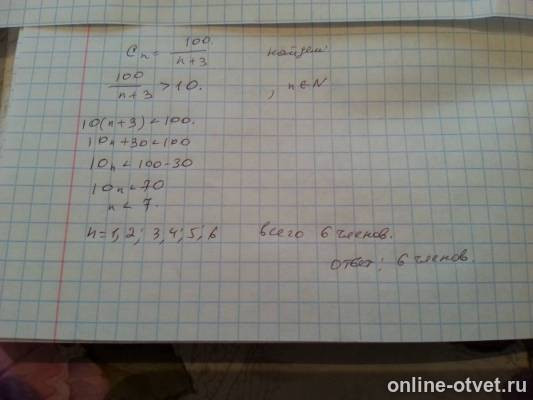 Cn = 100/(n+3) найдем
100/(n+3) > 10. , n∈N
10(n+3) < 100.
10n+30<100
10n < 100-30
10n < 70
n < 7.
n=1,2; 3,4; 5; 6 всего 6 членов.
ответ: 6 членов.
online-otvet.ru